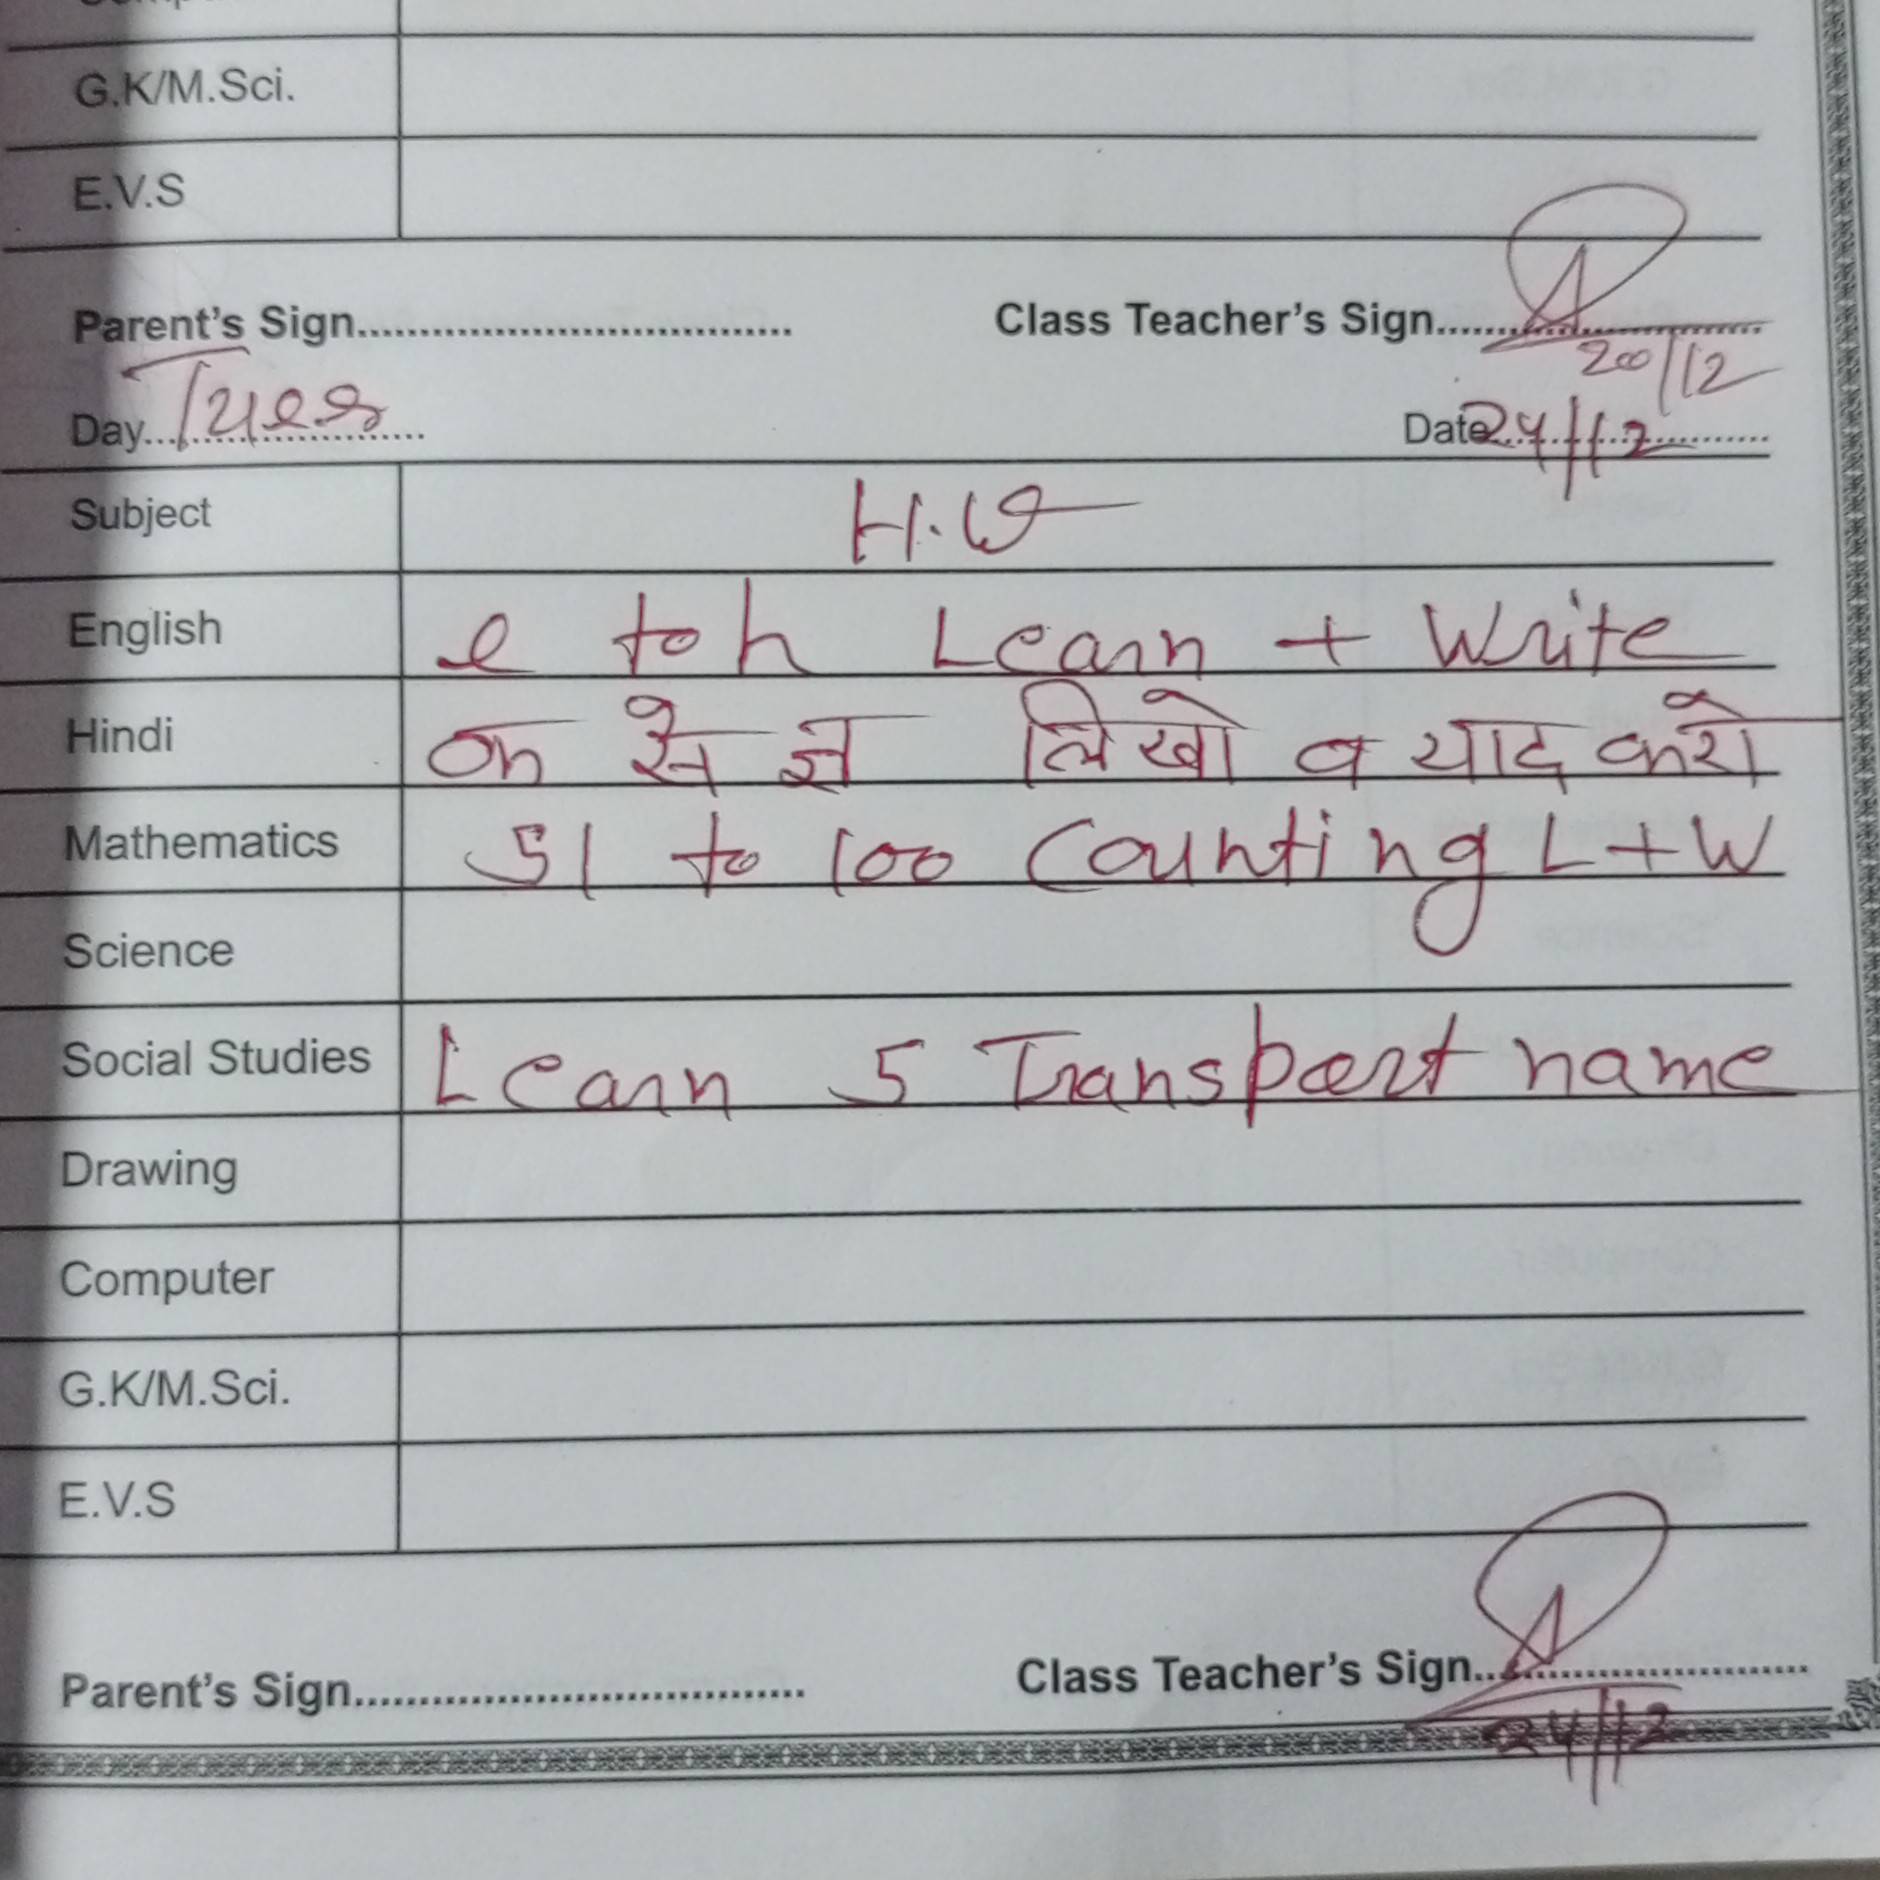 G.K/M.Sci.
E.V.S
Parent's Sign.................................... Class Teacher's Sign...........................
20/12
Day...Tues............ Date..24/12............
Subject H.W
English e to h Learn + Write
Hindi लिखो व याद करो
Mathematics 51 to 100 Counting L+W
Science
Social Studies Learn 5 Transport name
Drawing
Computer
G.K/M.Sci.
E.V.S
Parent's Sign.................................... Class Teacher's Sign...........................
24/12